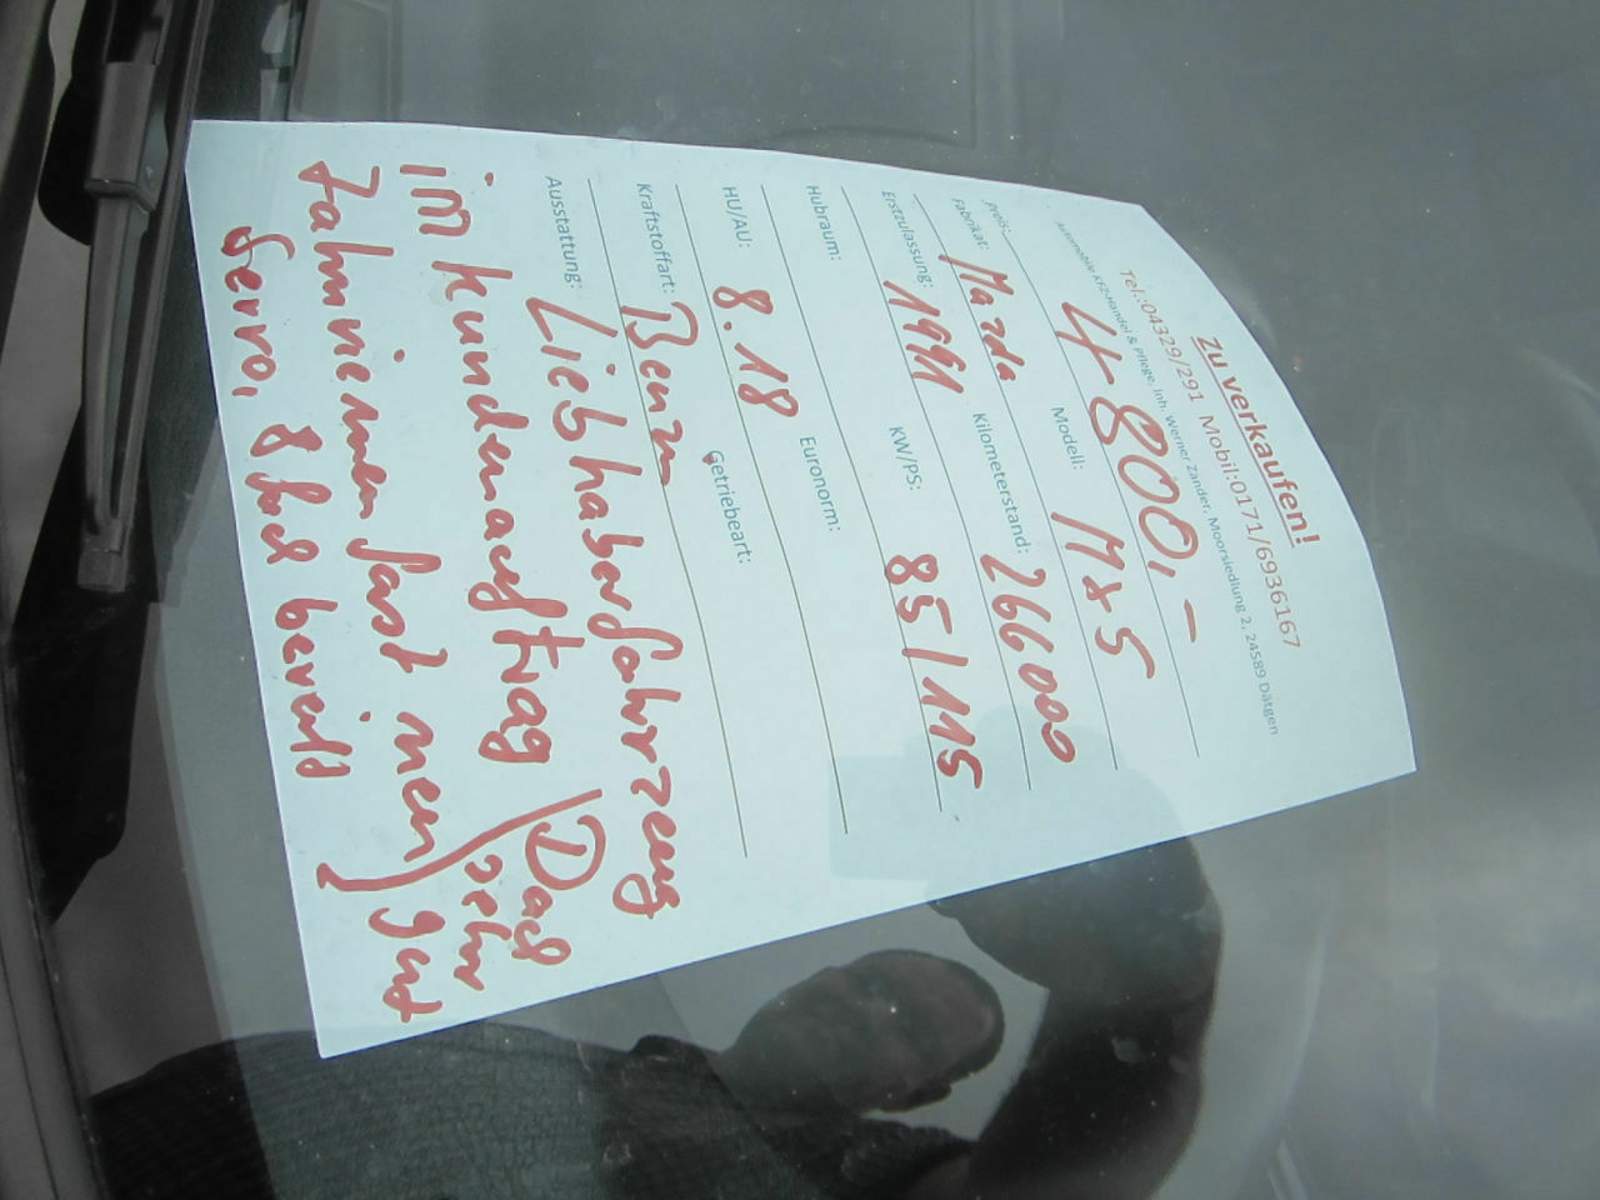 Zu verkaufen!
Tel.:04329/291 Mobil:0171/6936167
Automobile KFZ-Handel & Pflege, Inh. Werner Zander, Moorsiedlung 2, 24589 Dätgen
Preis: 4800,-
Fabrikat: Mazda Modell: Mx5
Erstzulassung: 1991 Kilometerstand: 266000
Hubraum: KW/PS: 85/115
HU/AU: 8.18 Euronorm:
Kraftstoffart: Benzin Getriebeart:
Ausstattung: Liebhaberfahrzeug
im Kundenauftrag / Dach
Zahnriemen fast neu / sehr gut
Servo, 8 fach bereift